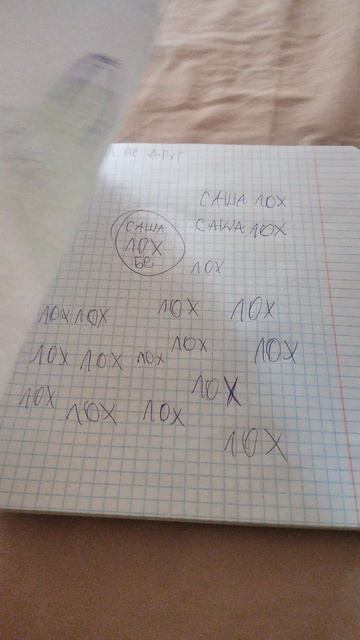 САША ЛОХ
САША ЛОХ
САША
ЛОХ
БЕ
ЛОХ
ЛОХ ЛОХ ЛОХ ЛОХ
ЛОХ ЛОХ ЛОХ ЛОХ ЛОХ
ЛОХ
ЛОХ ЛОХ ЛОХ
ЛОХ